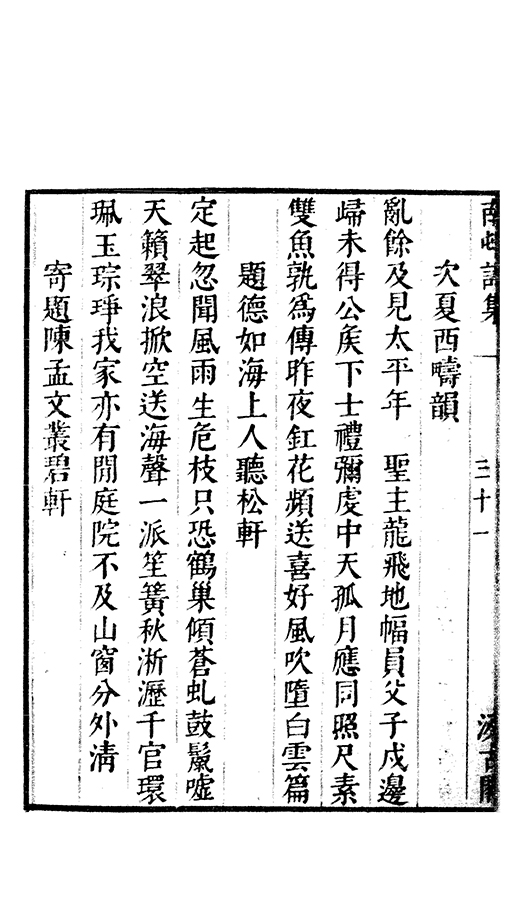 南邨詩集 一 三十一 汲古閣
次夏西疇韻
亂餘及見太平年　聖主龍飛地幅員父子戍邊
歸未得公矦下士禮彌虔中天孤月應同照尺素
雙魚孰爲傳昨夜釭花頻送喜好風吹墮白雲篇
題德如海上人聽松軒
定起忽聞風雨生危枝只恐鶴巢傾蒼虬鼓鬣噓
天籟翠浪掀空送海聲一派笙簧秋淅瀝千官環
珮玉琮琤我家亦有閒庭院不及山窗分外淸
寄題陳孟文叢碧軒